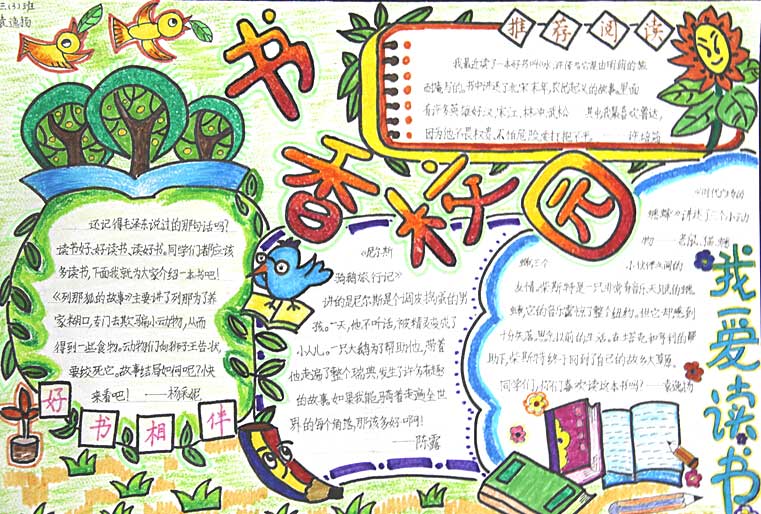 三(3)班
袁逸扬
书香校园
推荐阅读
我最近读了一本好书叫《水浒传》它是由明朝的施
耐庵写的。书中讲述了北宋末年，农民起义的故事。里面
有许多英雄好汉，宋江、林冲、武松 其中我最喜欢
因为他不畏权贵、不怕危险
还记得毛泽东说过的那句话吗？
读书好、好读书、读好书。同学们都应该
多读书，下面我就为大家介绍一本书吧！
《列那狐的故事》主要讲了列那为了养
家糊口，专门去欺骗小动物，从而
得到一些食物。动物们向狮王告状，
要绞死它。故事结局如何呢？快
来看吧！ ——杨采妮
好书相伴
《尼尔斯
骑鹅旅行记》
讲的是尼尔斯是个调皮捣蛋的男
孩。一天，他不听话，被精灵变成了
小人儿。一只大鹅为了帮助他，带着
他走遍了整个瑞典，发生了许多有趣
的故事。如果我能骑着走遍全世
界的每个角落，那该多好啊！
——陈露
《时代广场的
蟋蟀》讲述了三个小动
物——老鼠、猫、蟋
蟀三个 小伙伴之间的
友情。柴斯特是一只非常有音乐天赋的蟋
蟀，它的音乐震惊了整个纽约。但它却感到
十分失落，思念以前的生活。在塔克和亨利的帮
助下，柴斯特终于回到了自己的故乡大草原。
同学们，你们喜欢读这本书吗？——袁逸扬
我爱读书